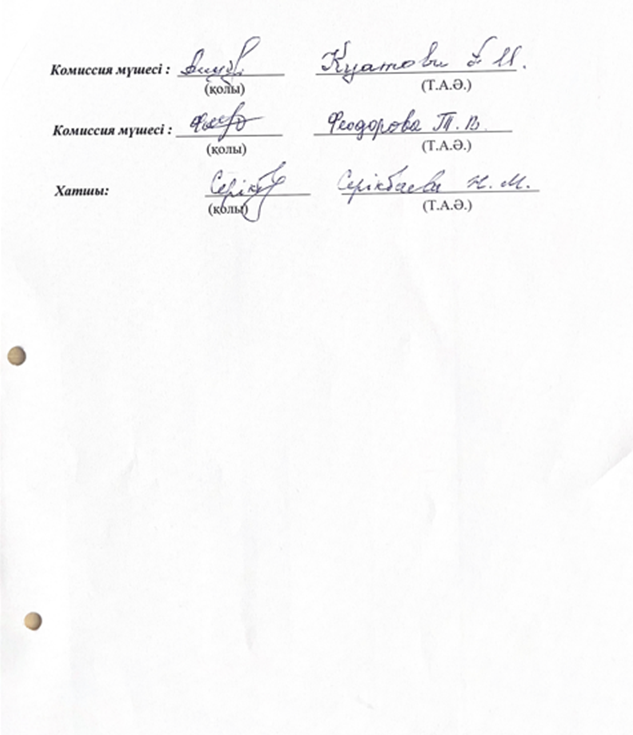 Комиссия мүшесі :
(қолы) (Т.А.Ә.)
Комиссия мүшесі : Феодорова Т. В.
(қолы) (Т.А.Ә.)
Хатшы: Серікбаева Н. М.
(қолы) (Т.А.Ә.)